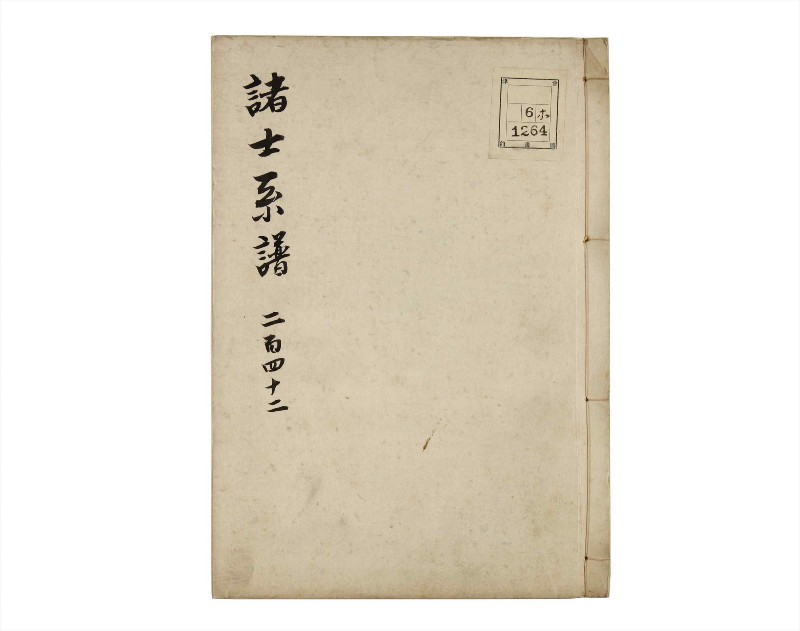 諸士系譜 二百四十二
6 ホ
1264